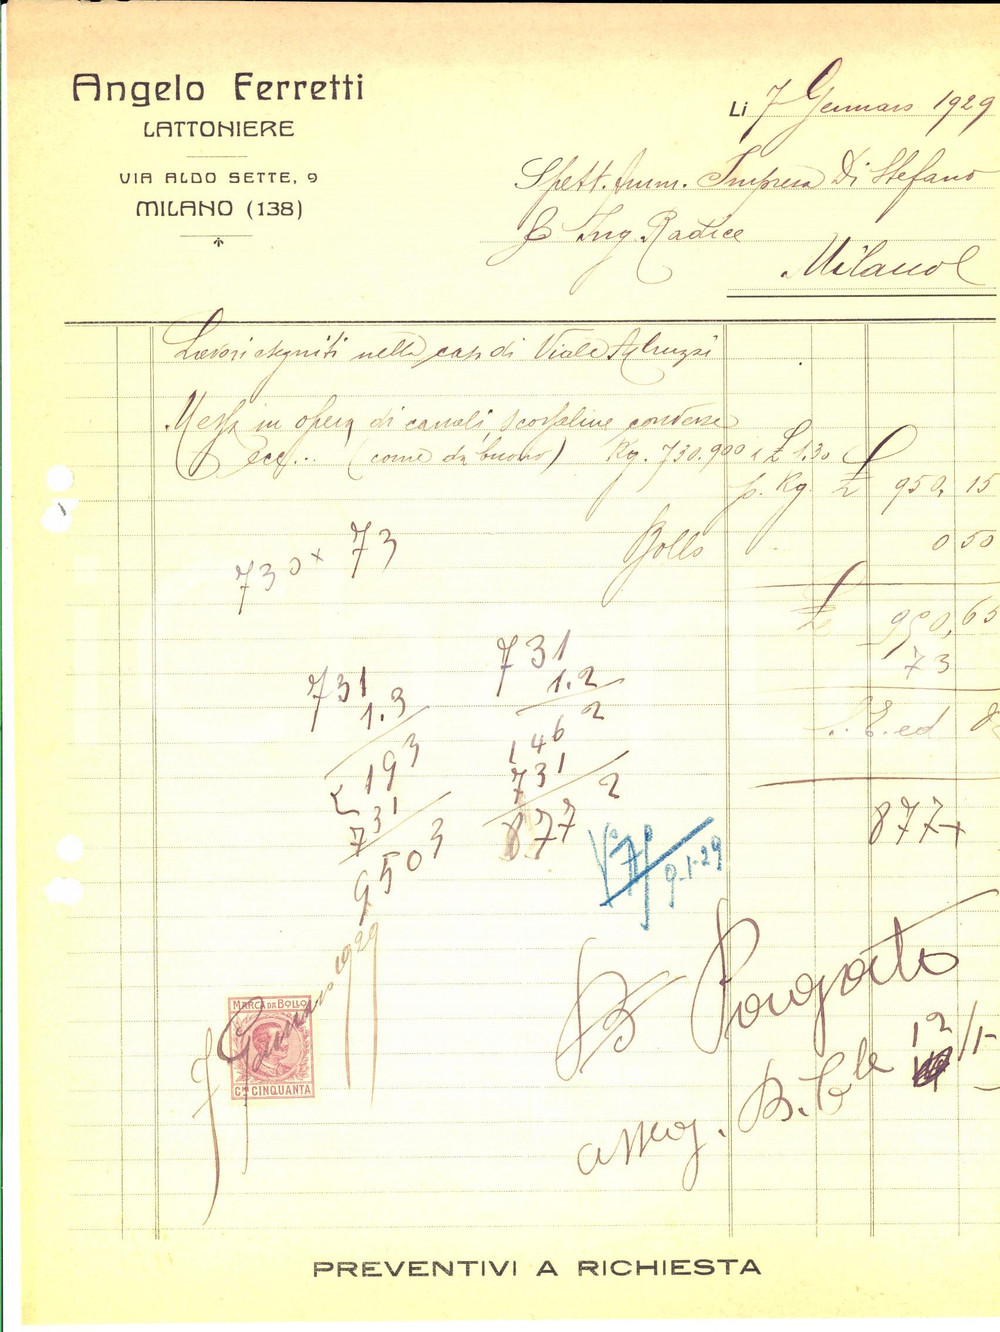 Angelo Ferretti
LATTONIERE
VIA ALDO SETTE, 9
MILANO (138)
Li 7 Gennaio 1929
Spett. Amm. Impresa Di Stefano
& Ing. Radice
Milano
Lavori eseguiti nella casa di Viale Abruzzi
Messa in opera di canali, scossaline, converse
ecc... (come da buono) Kg. 730.900 a £ 1.30
p. Kg. £ 950,15
Bollo 0 50
£ 950,65
73
877
730 x 73
731
1.3
193
731
9503
731
1.2
2
146
731 2
877
9-1-29
Pagato
12/1-
7 Gennaio 1929
MARCA DA BOLLO
CMI CINQUANTA
PREVENTIVI A RICHIESTA